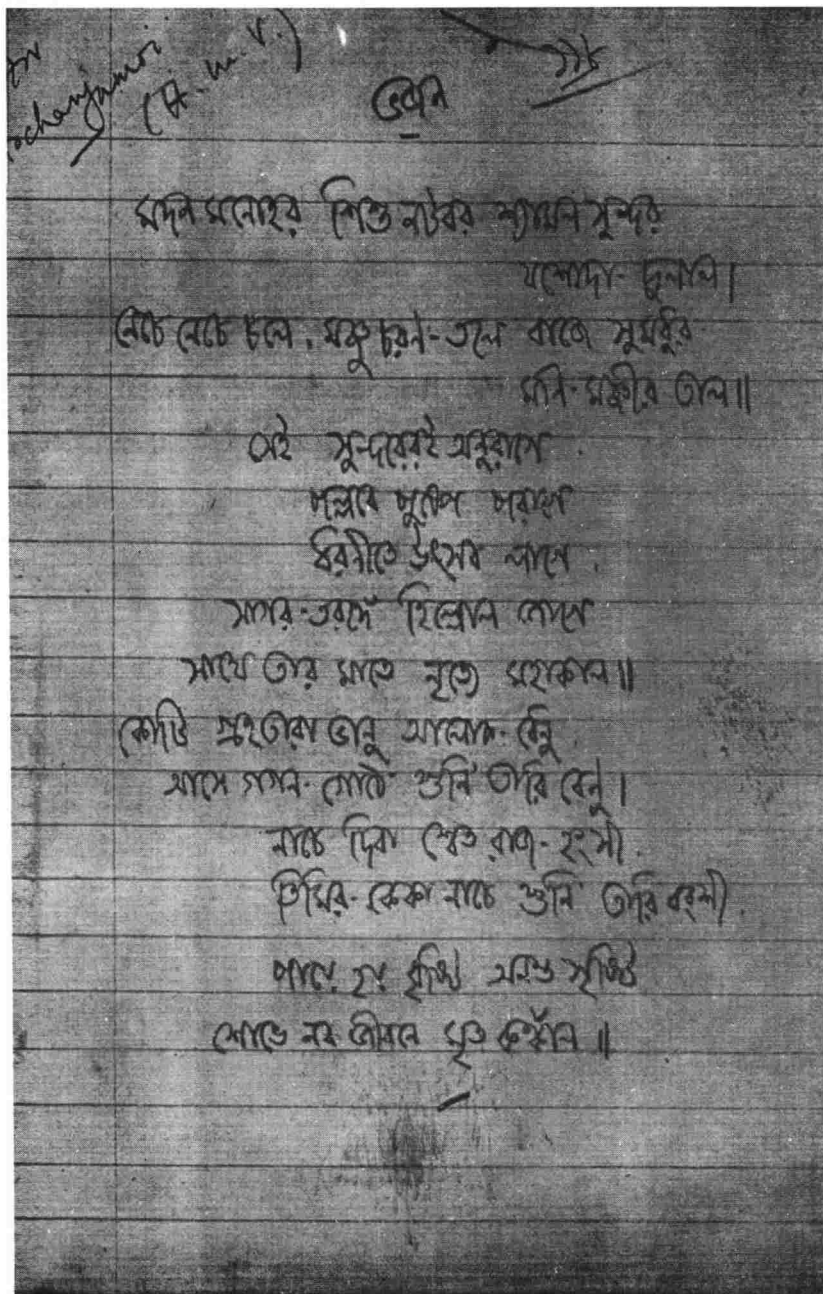 (H. M. V.)
ভজন
মদন মনোহর শিশু নটবর শ্যামল সুন্দর
যশোদা-দুলাল।
নেচে নেচে চলে, মঞ্জু চরণ-তলে বাজে সুমধুর
মনি-মঞ্জীর তাল॥
সেই সুন্দরেরই অনুরাগে
পল্লবে পুষ্পে পরাগে
ধরণীতে উৎসব লাগে,
সাগর-তরঙ্গে হিল্লোল জাগে
সাথে তার মাতে নৃত্যে মহাকাল॥
কোটি গ্রহতারা ভানু আলোক-ধেনু
আসে গগন-গোঠে শুনি তারি বেনু।
নাচে দিবা শ্বেত রাজ-হংসী,
তিমির-কেকা নাচে শুনি তারি বংশী,
পায়ে হয় বৃষ্টি অনন্ত সৃষ্টি
শোভে নব জীবনে মৃত